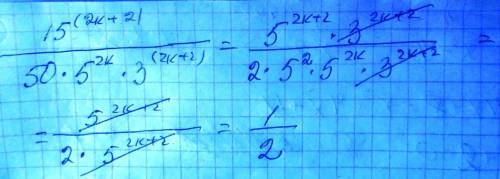 15^(2k+2) / (50 · 5^2k · 3^(2k+2)) = (5^2k+2 · 3^2k+2) / (2 · 5^2 · 5^2k · 3^2k+2) =
= 5^2k+2 / (2 · 5^2k+2) = 1/2